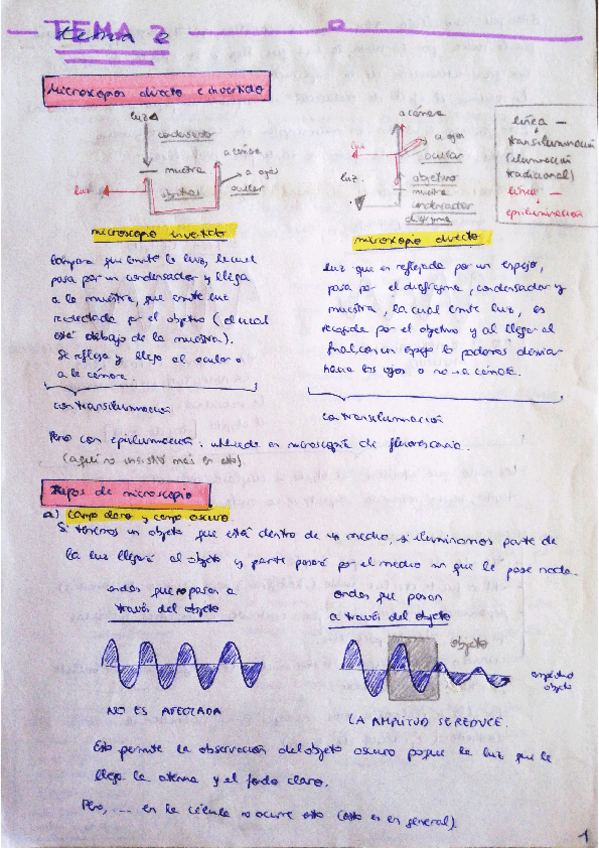 TEMA 2
tema 2
Microscopios directo e invertido
luz
condensador
muestra
objetivo
luz
a cámara
a ojos
ocular
microscopio invertido
a cámara
a ojos
ocular
luz
objetivo
luz
muestra
condensador
diafragma
microscopio directo
línea
transiluminación
(iluminación
tradicional)
línea
epiluminación
lámpara que emite la luz, la cual
pasa por un condensador y llega
a la muestra, que emite luz
recolectada por el objetivo (el cual
está debajo de la muestra).
Se refleja y llega al ocular o
a la cámara.
con transiluminación
luz que es reflejada por un espejo,
pasa por el diafragma, condensador y
muestra, la cual emite luz, es
recogida por el objetivo y al llegar al
final, con un espejo lo podemos desviar
hacia los ojos o no → a cámara.
con transiluminación
Pero con epiluminación: utilizada en microscopía de fluorescencia.
(aquí no insistió más en esto)
Tipos de microscopio
a) Campo claro y campo oscuro.
Si tenemos un objeto que está dentro de un medio, si iluminamos parte de
la luz llegará al objeto y parte pasará por el medio sin que le pase nada.
ondas que no pasan a
través del objeto
NO ES AFECTADA
ondas que pasan
a través del objeto
objeto
amplitud
objeto
LA AMPLITUD SE REDUCE.
Esto permite la observación del objeto oscuro porque la luz que le
llega la atenua y el fondo claro.
Pero, .... en la célula no ocurre esto (esto es en general).
1